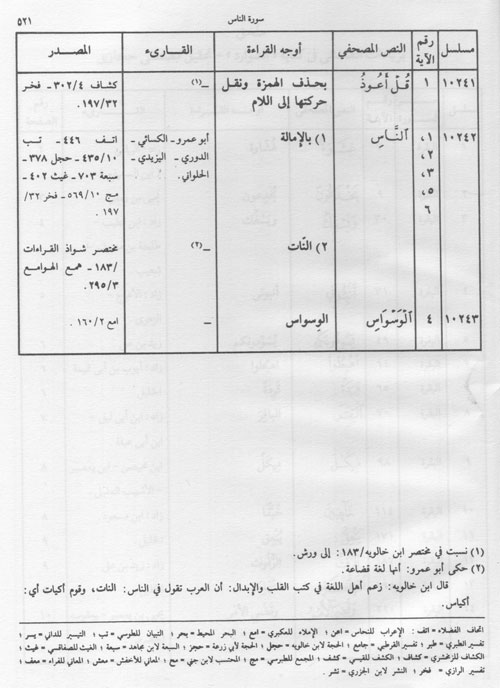 سورة الناس ٥٢١
مسلسل رقم الآية النص المصحفي أوجه القراءة القارىء المصدر
١٠٢٤١ ١ قُلْ أَعُوذُ بحذف الهمزة ونقل ـ(١) كشاف ٣٠٢/٤ ـ فخر
حركتها إلى اللام ١٩٧/٣٢.
١٠٢٤٢ ١، النَّاسِ ١) بالإمالة أبو عمرو ـ الكسائي ـ اتف ٤٤٦ ـ تب
٢، الدوري ـ اليزيدي ـ ٤٣٥/١٠ ـ حجل ٣٧٨ ـ
٣، الحلواني. سبعة ٧٠٣ ـ غيث ٤٠٢ ـ
٥، مج ٥٦٩/١٠ ـ فخر ٣٢/
٦ ١٩٧.
٢) النّات ـ(٢) مختصر شواذ القراءات
/١٨٣ ـ همع الهوامع
٢٩٥/٣.
١٠٢٤٣ ٤ الْوَسْوَاسِ الوِسواس ـ امع ١٦٠/٢.
(١) نسبت في مختصر ابن خالويه/١٨٣: إلى ورش.
(٢) حكى أبو عمرو: أنها لغة قضاعة.
قال ابن خالويه: زعم أهل اللغة في كتب القلب والإبدال: أن العرب تقول في الناس: النات، وقوم أكيات أي:
أكياس.
اتحاف الفضلاء = اتف؛ الإعراب للنحاس = اهن؛ الإملاء للعكبري = امع؛ البحر المحيط = بحر؛ التبيان للطوسي = تب؛ التيسير للداني = يسر؛
تفسير الطبري = طبر؛ تفسير القرطبي = جامع؛ الحجة لابن خالويه = حجل؛ الحجة لأبي زرعة = حجز؛ السبعة لابن مجاهد = سبعة؛ الغيث للصفاقسي = غيث؛
الكشاف للزمخشري = كشاف؛ الكشف للقيسي = كشف؛ المجمع للطبرسي = مج؛ المحتسب لابن جني = مح؛ المعاني للأخفش = معش؛ المعاني للفراء = معف؛
تفسير الرازي = فخر؛ النشر لابن الجزري = نشر.